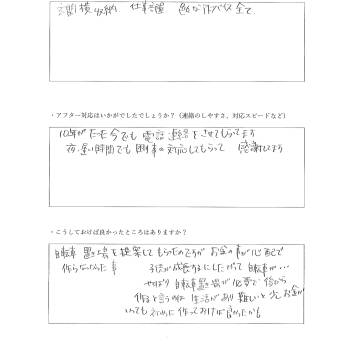 玄関横収納 仕事部屋 色々なアドバイス全て
・アフター対応はいかがでしたでしょうか？（連絡のしやすさ、対応スピードなど）
10年がたった今でも電話連絡をさせてもらってます
夜遅い時間でも 対応してもらって 感謝してます
・こうしておけば良かったところはありますか？
自転車置き場を提案してもらったのですが お金の事が心配で
作らなかった事 子供が成長するにしたがって 自転車が…
やはり 自転車置き場が必要で
作ると言うのは 生活があり 難しい お金が
作っておけば良かったかも